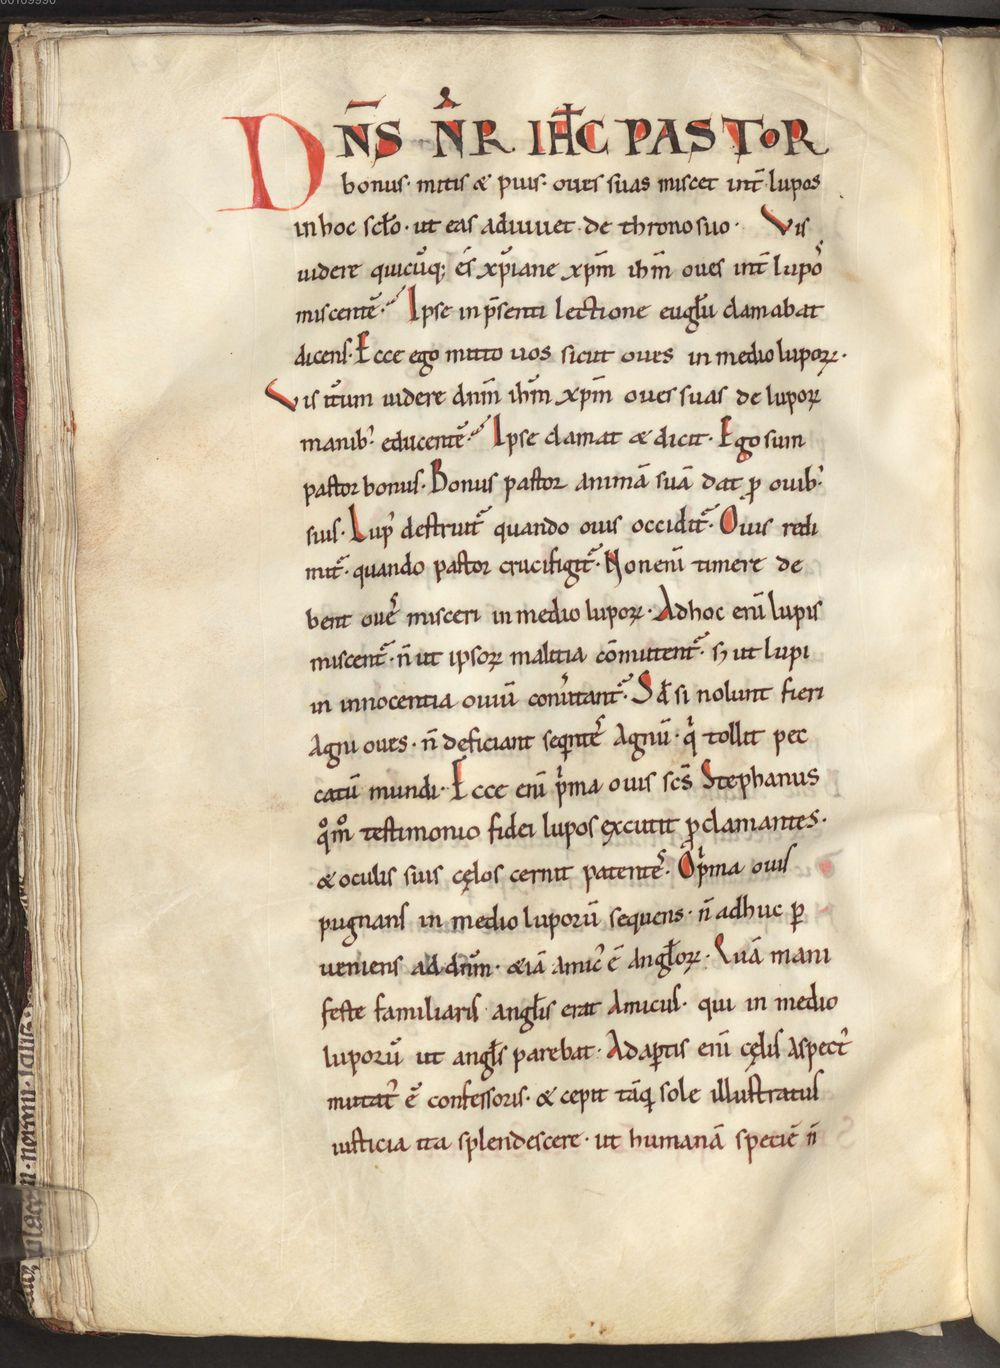 DN̄S N̄R IH̄C PASTOR
bonus· mitis & pius· oues suas miscet int̄ lupos
in hoc scło· ut eas adiuuet de throno suo· Vis
uidere quicūq; es xp̄iane xp̄m ih̄m oues int̄ lupos
miscentē· Ipse in p̄senti lectione eugłii clamabat
dicens· Ecce ego mitto uos sicut oues in medio lupoꝝ·
Vis itūm uidere dn̄m ih̄m xp̄m oues suas de lupoꝝ
manib; educentē· Ipse clamat & dicit· Ego sum
pastor bonus· Bonus pastor animā suā dat p̄ ouib;
suis· Lup᾽ destruit᷑ quando ouis occidit᷑· Ouis redi
mit᷑· quando pastor crucifigit᷑· Non enī timere de
bent oues misceri in medio lupoꝝ· Ad hoc enī lupis
miscent᷑· n̄ ut ipsoꝝ malitia cōmittent᷑· sꝫ ut lupi
in innocentia ouiū conu̾tant᷑· Sꝫ si nolunt fieri
Agni oues· n̄ deficiant seqͥntes Agnū· qͥ tollit pec
catū mundi· Ecce enī pͥma ouis sc̄s Stephanus
qͦmͦ testimonio fidei lupos excutit p̄clamantes·
& oculis suis cęlos cernit patentes· O pͥma ouis
pugnans in medio luporū sequens· n̄ adhuc ꝑ
ueniens ad dn̄m· & iā amic᾽ ē angłoꝝ· Quā mani
feste familiaris angłis erat Amicus· qui in medio
luporū ut angłs parebat· Adaꝑtis enī cęlis Aspect᾽
mutat᾽ ē confessoris· & cepit tāq̄ sole illustratus
iusticia ita splendescere· ut humanā speciē n̄